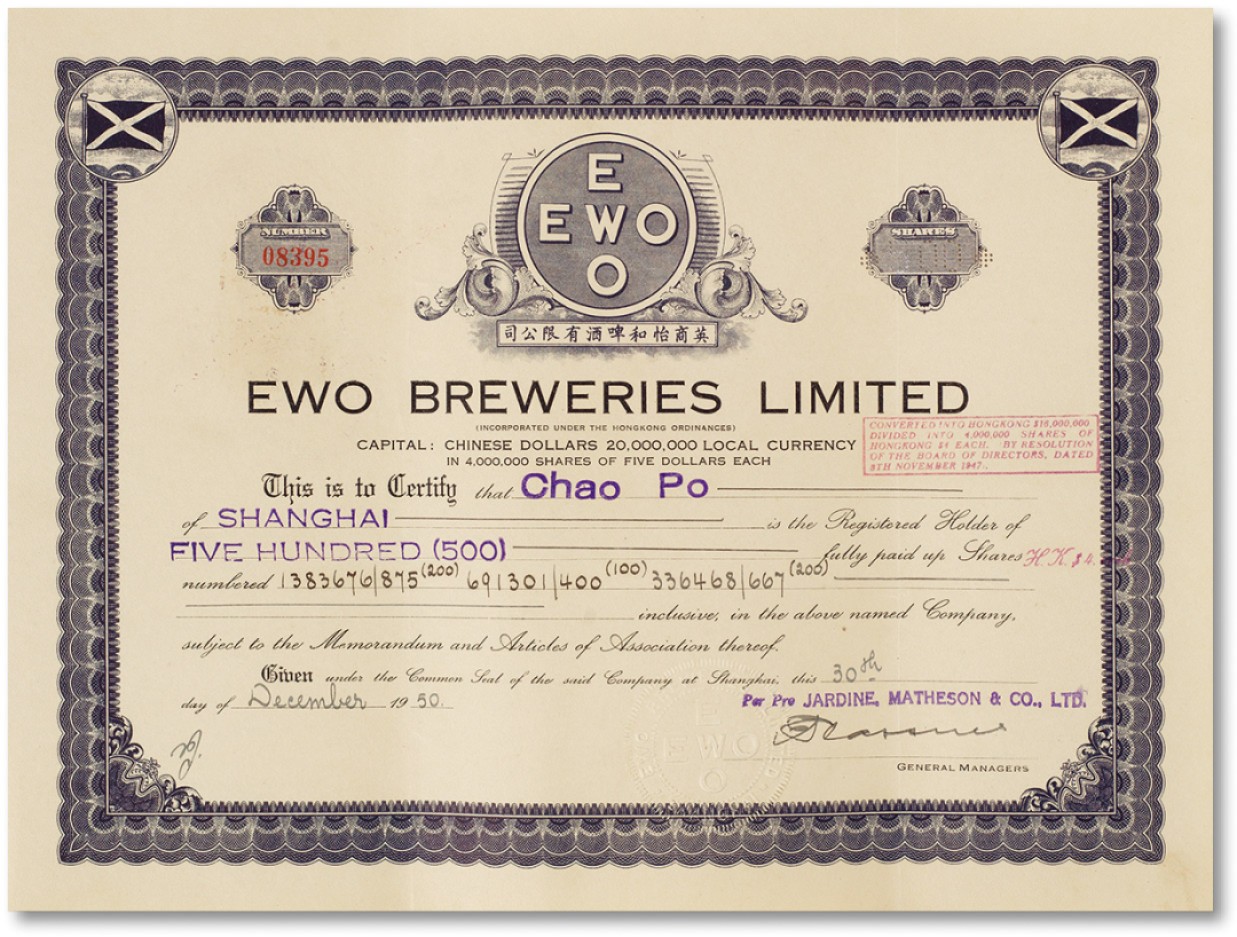 NUMBER
08395
E
EWO
O
SHARES
英商怡和啤酒有限公司
EWO BREWERIES LIMITED
(INCORPORATED UNDER THE HONGKONG ORDINANCES)
CAPITAL: CHINESE DOLLARS 20,000,000 LOCAL CURRENCY
IN 4,000,000 SHARES OF FIVE DOLLARS EACH
CONVERTED INTO HONGKONG $16,000,000
DIVIDED INTO 4,000,000 SHARES OF
HONGKONG $4 EACH. BY RESOLUTION
OF THE BOARD OF DIRECTORS, DATED
8TH NOVEMBER 1947.
This is to Certify that Chao Po
of SHANGHAI is the Registered Holder of
FIVE HUNDRED (500) fully paid up Shares H.K.$4.
numbered 1383676/875 (200) 691301/400 (100) 336468/667 (200)
inclusive, in the above named Company,
subject to the Memorandum and Articles of Association thereof.
Given under the Common Seal of the said Company at Shanghai, this 30th
day of December 1950.
Per Pro JARDINE, MATHESON & CO., LTD.
GENERAL MANAGERS
E
EWO
O